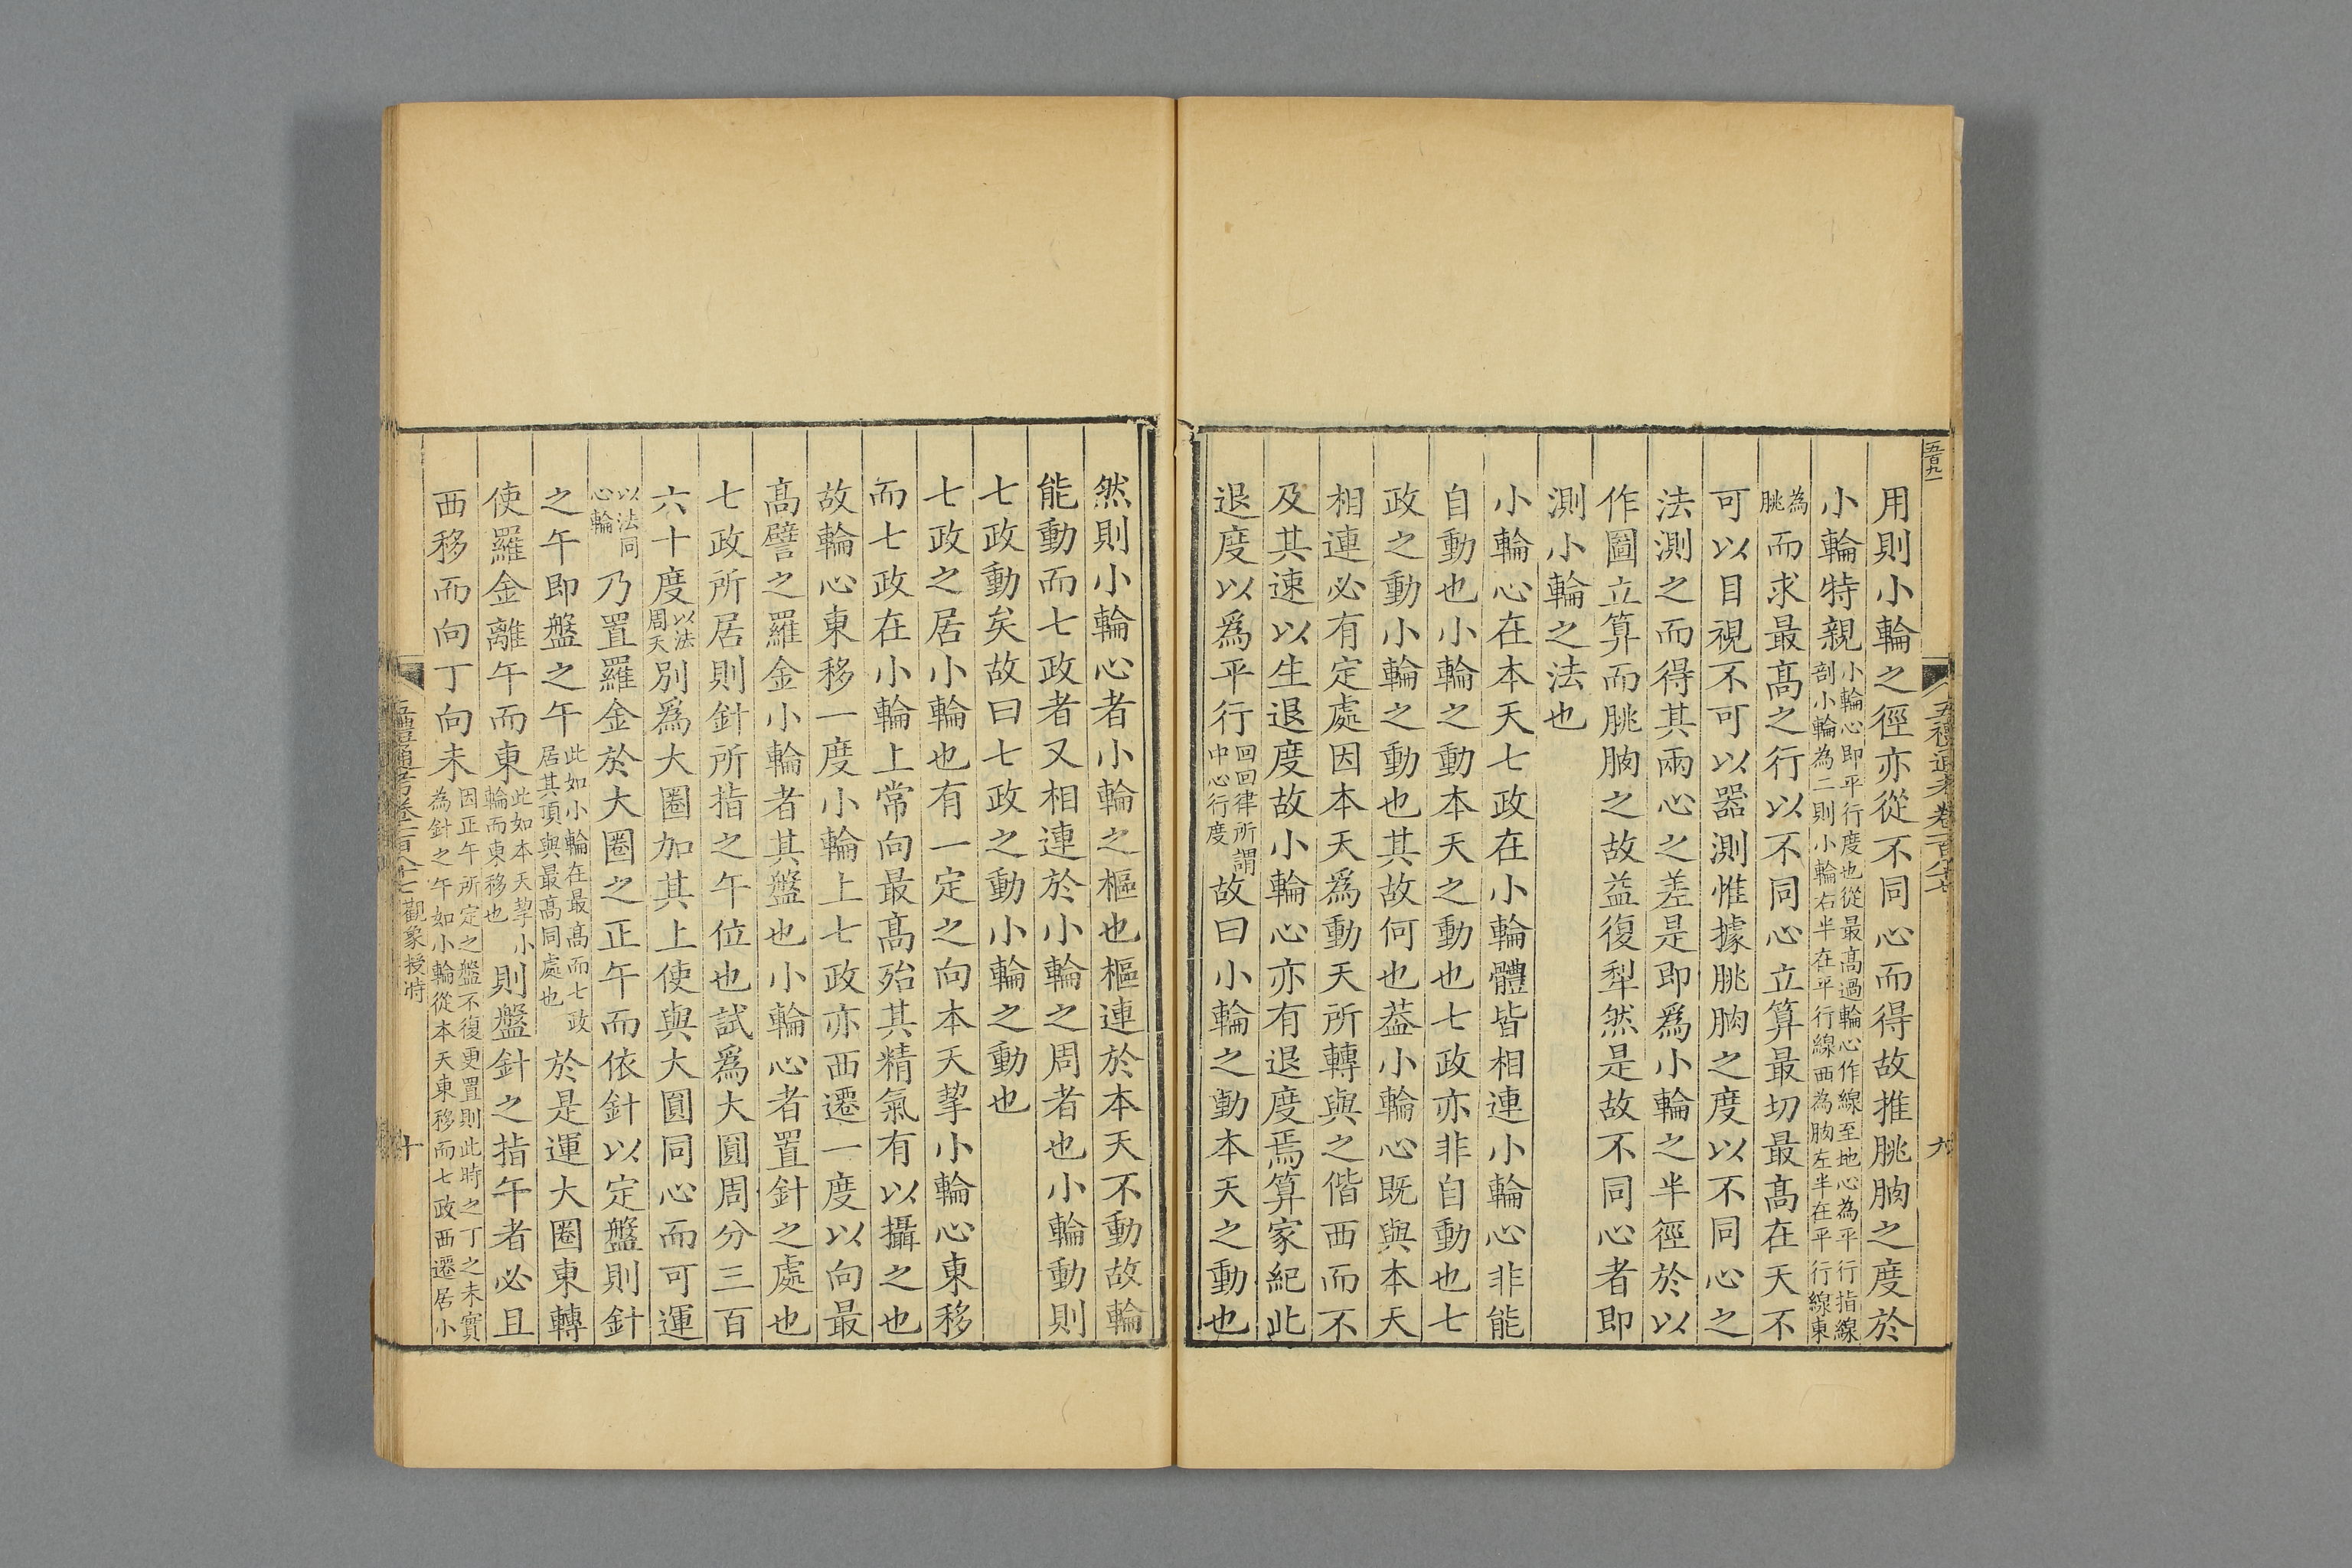 用則小輪之徑亦從不同心而得故推朓朒之度於
小輪特親小輪心即平行度也從最髙過輪心作線至地心為平行指線剖小輪為二則小輪右半在平行線西為朒左半在平行線東
為朓而求最髙之行以不同心立算最切最髙在天不
可以目視不可以器測惟據朓朒之度以不同心之
法測之而得其兩心之差是即爲小輪之半徑於以
作圖立算而朓朒之故益復犁然是故不同心者即
測小輪之法也
小輪心在本天七政在小輪體皆相連小輪心非能
自動也小輪之動本天之動也七政亦非自動也七
政之動小輪之動也其故何也葢小輪心既與本天
相連必有定處因本天爲動天所轉與之偕西而不
及其速以生退度故小輪心亦有退度焉算家紀此
退度以爲平行回回律所謂中心行度故曰小輪之動本天之動也
然則小輪心者小輪之樞也樞連於本天不動故輪
能動而七政者又相連於小輪之周者也小輪動則
七政動矣故曰七政之動小輪之動也
七政之居小輪也有一定之向本天挈小輪心東移
而七政在小輪上常向最髙殆其精氣有以攝之也
故輪心東移一度小輪上七政亦西遷一度以向最
髙譬之羅金小輪者其盤也小輪心者置針之處也
七政所居則針所指之午位也試爲大圓周分三百
六十度以法周天別爲大圈加其上使與大圓同心而可運
以法同心輪乃置羅金於大圈之正午而依針以定盤則針
之午即盤之午此如小輪在最髙而七政居其頂與最髙同處也於是運大圈東轉
使羅金離午而東此如本天挈小輪而東移也則盤針之指午者必且
西移而向丁向未因正午所定之盤不復更置則此時之丁之未實為針之午如小輪從本天東移而七政西遷居小
五禮通考卷一百八十七觀象授時
十